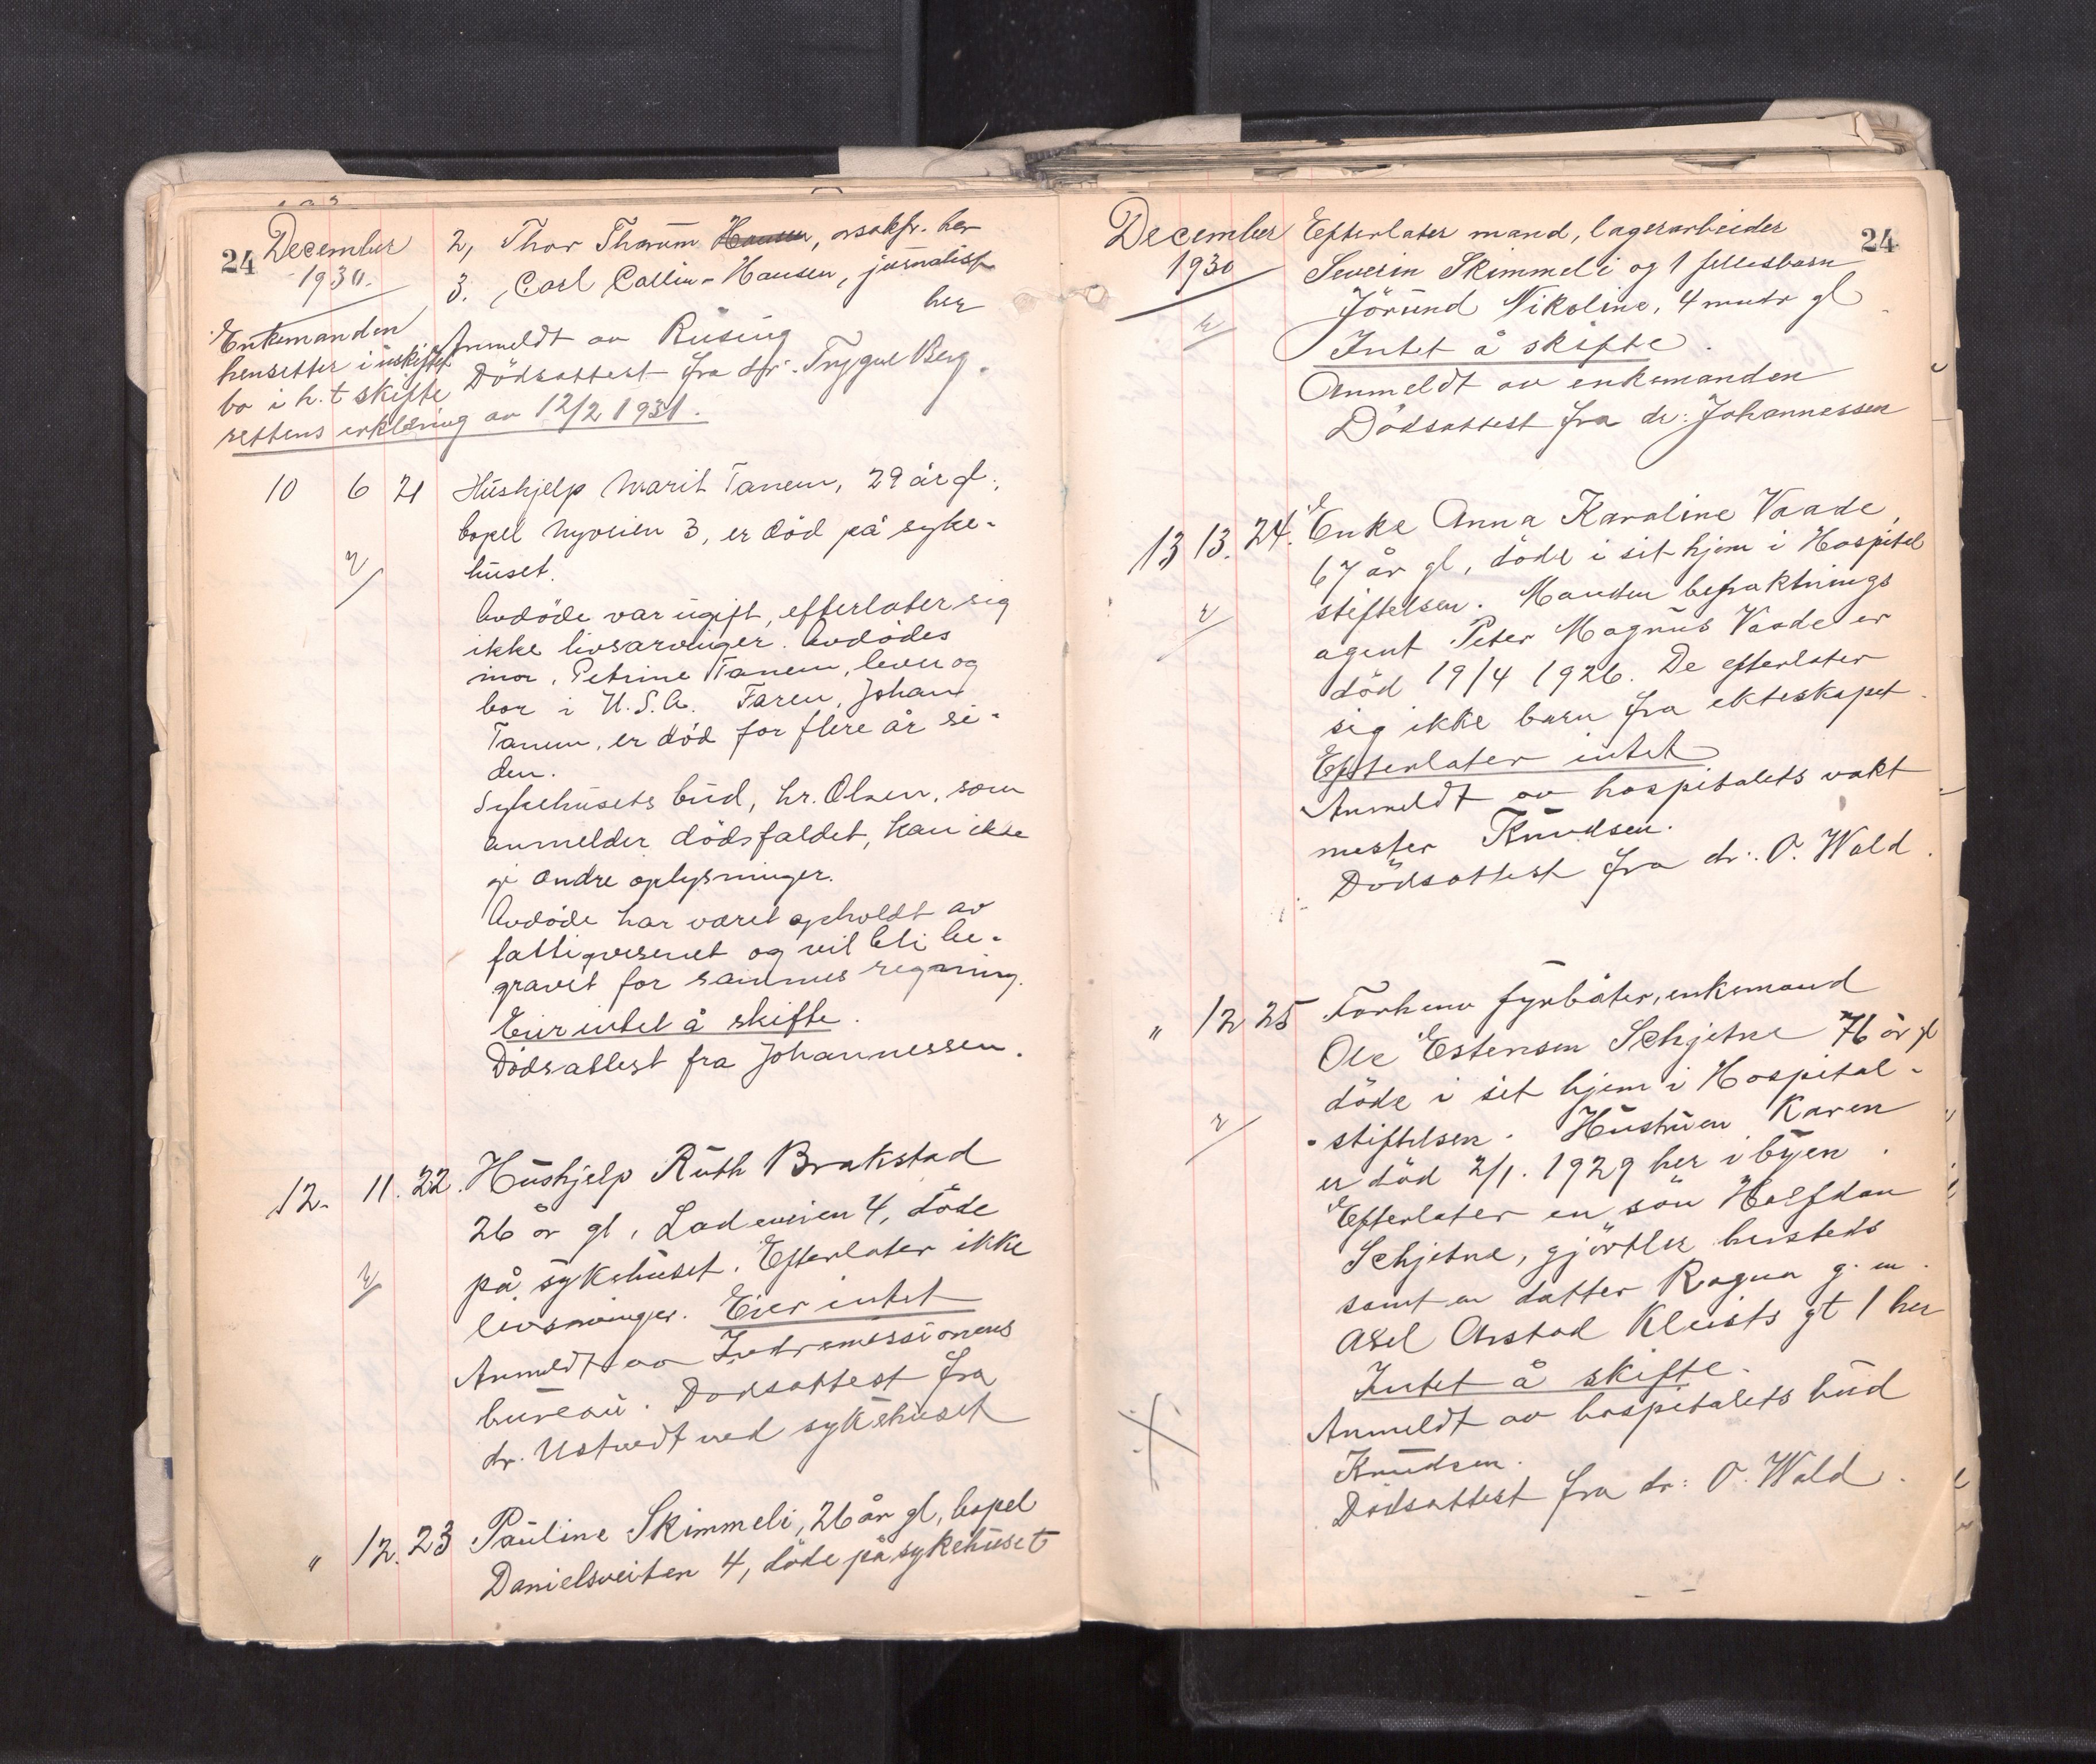 24 December
1930.
2, Thor Tharum Hansen, orsakfr. her
3. Carl Collin-Hansen, journalist
her
Enkemanden
hensetter i uskiftet
bo i h.t skifte
rettens erklæring av 12/2 1931.
Anmeldt av Rüsing
Dödsattest fra dr. Trygve Berg.
10 6 21 Hushjelp Marit Tanem, 29 år gl.,
bopel Nyveien 3, er död på syke-
huset.
Avdöde var ugift, efterlater sig
ikke livsarvinger. Avdödes
mor, Petrine Tanem, lever og
bor i U.S.A. Faren, Johan
Tanem, er död for flere år si-
den.
Sykehusets bud, hr. Olsen, som
anmelder dödsfaldet, kan ikke
gi andre oplysninger.
Avdöde har været opholdt av
fattigvesenet og vil bli be-
gravet for sammes regning.
Eier intet å skifte.
Dödsattest fra Johannessen.
12. 11. 22. Hushjelp Ruth Brakstad
26 år gl, Ladeveien 4, döde
på sykehuset. Efterlater ikke
livsarvinger. Eier intet
Anmeldt av Indremissionens
bureau. Dödsattest fra
dr. Ustvedt ved sykehuset
" 12. 23 Pauline Skimmeli, 26 år gl, bopel
Danielsveiten 4, döde på sykehuset
December 24
1930
Efterlater mand, lagerarbeider
Severin Skimmeli og 1 fellesbarn
Jörund Nikoline, 4 mndr gl
Intet å skifte.
Anmeldt av enkemanden
Dödsattest fra dr: Johannessen
13 13. 24. Enke Anna Karoline Vaade,
67 år gl, döde i sit hjem i Hospital
stiftelsen. Manden befraktnings
agent Peter Magnus Vaade er
död 19/4 1926. De efterlater
sig ikke barn fra ekteskapet.
Efterlater intet
Anmeldt av hospitalets vakt
mester Knudsen.
Dödsattest fra dr: O. Wald.
" 12 25 Forhenv fyrböter, enkemand
Ole Estensen Schjetne 76 år gl
döde i sit hjem i Hospital-
-stiftelsen. Hustruen Karen
er död 2/1. 1929 her i byen.
Efterlater en sön Halfdan
Schjetne, gjörtler hersteds
samt en datter Ragna g. m.
Axel Arstad Kleists gt 1 her
Intet å skifte.
Anmeldt av hospitalets bud
Knudsen.
Dödsattest fra dr: O. Wald.